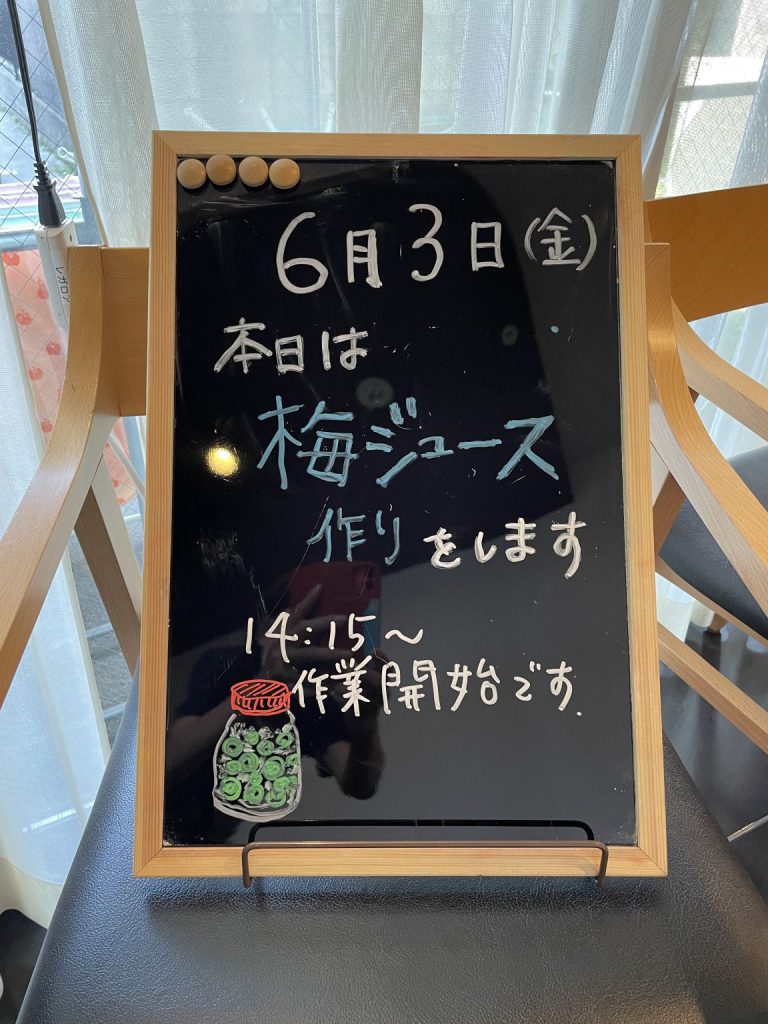 6月3日(金)
本日は
梅ジュース
作りをします
14:15～
作業開始です.